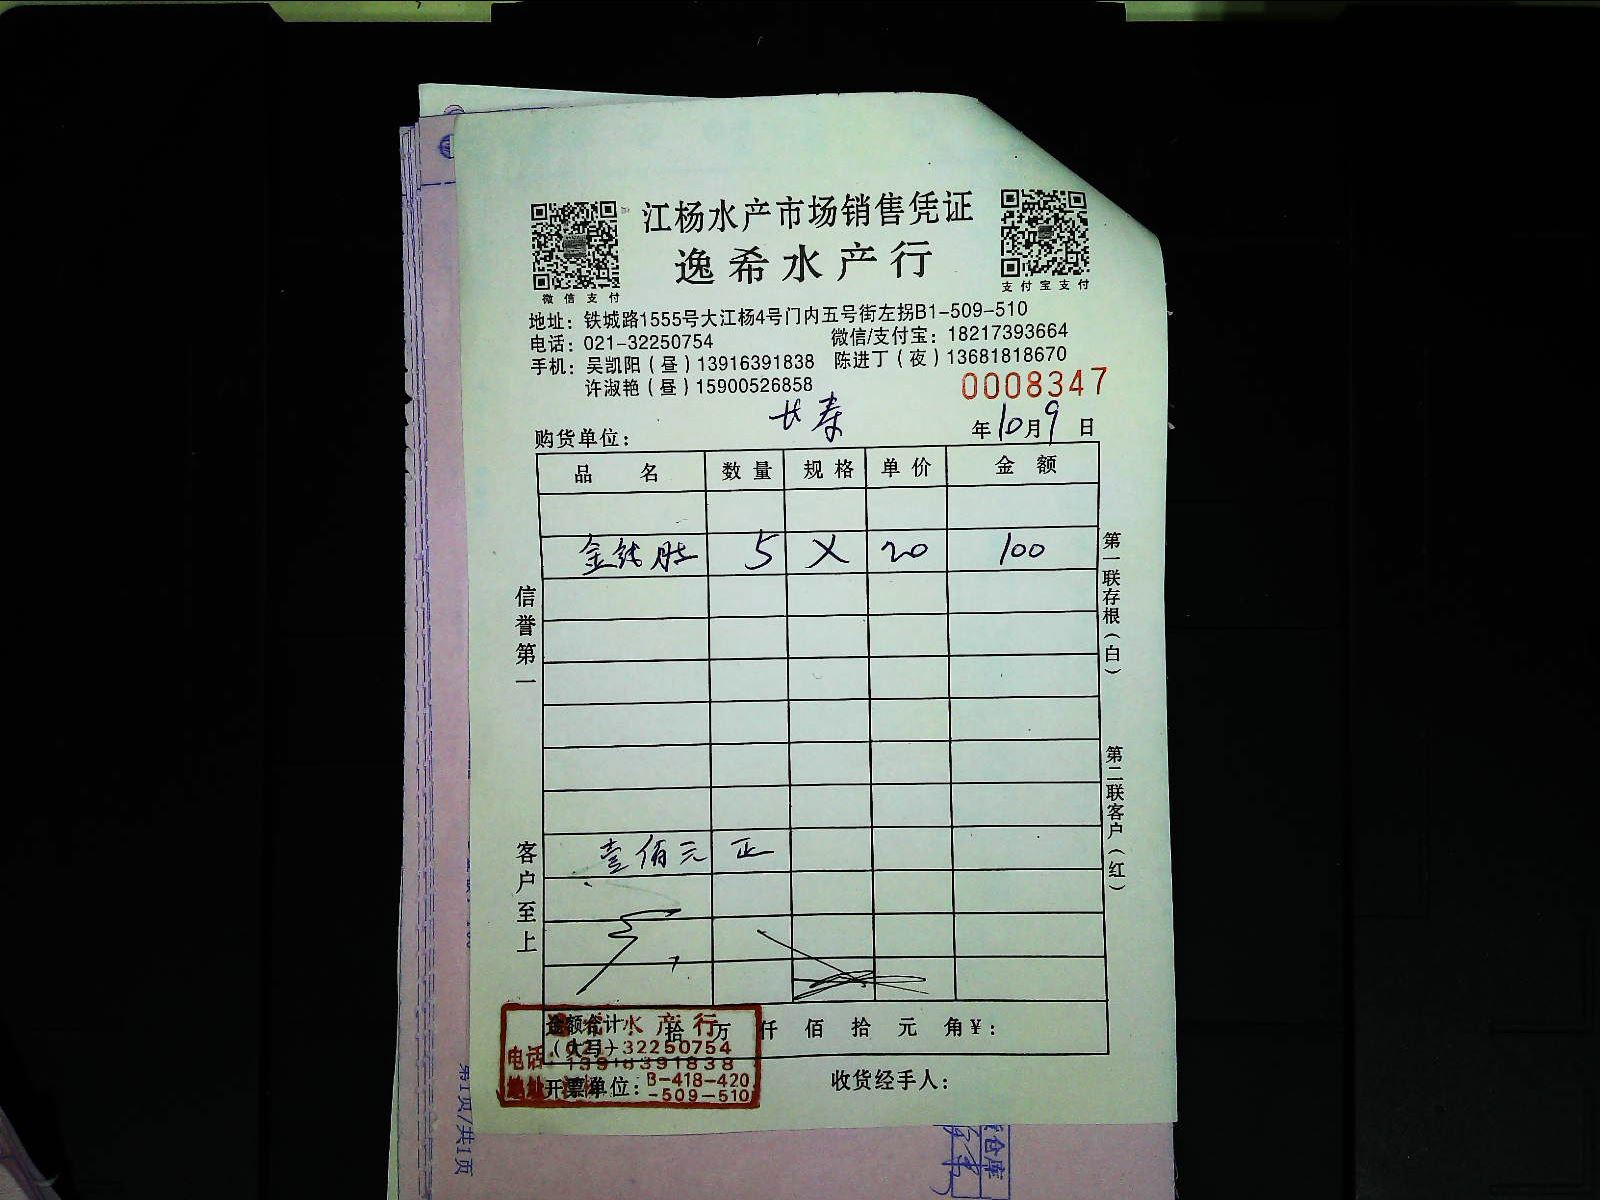 江杨水产市场销售凭证
逸希水产行
微信支付
支付宝支付
地址：铁城路1555号大江杨4号门内五号街左拐B1-509-510
电话：021-32250754 微信/支付宝：18217393664
手机：吴凯阳（昼）13916391838 陈进丁（夜）13681818670
许淑艳（昼）15900526858
0008347
购货单位： 长寿 年10月9日
品名 数量 规格 单价 金额
5 X 20 100
壹佰元正
信誉第一
客户至上
第一联存根（白）
第二联客户（红）
金额合计 拾 万 仟 佰 拾 元 角 ¥：
（大写）
开票单位：
收货经手人：
水产行
电话：021-32250754
13916391838
B-418-420
-509-510
第1页/共1页
仓库